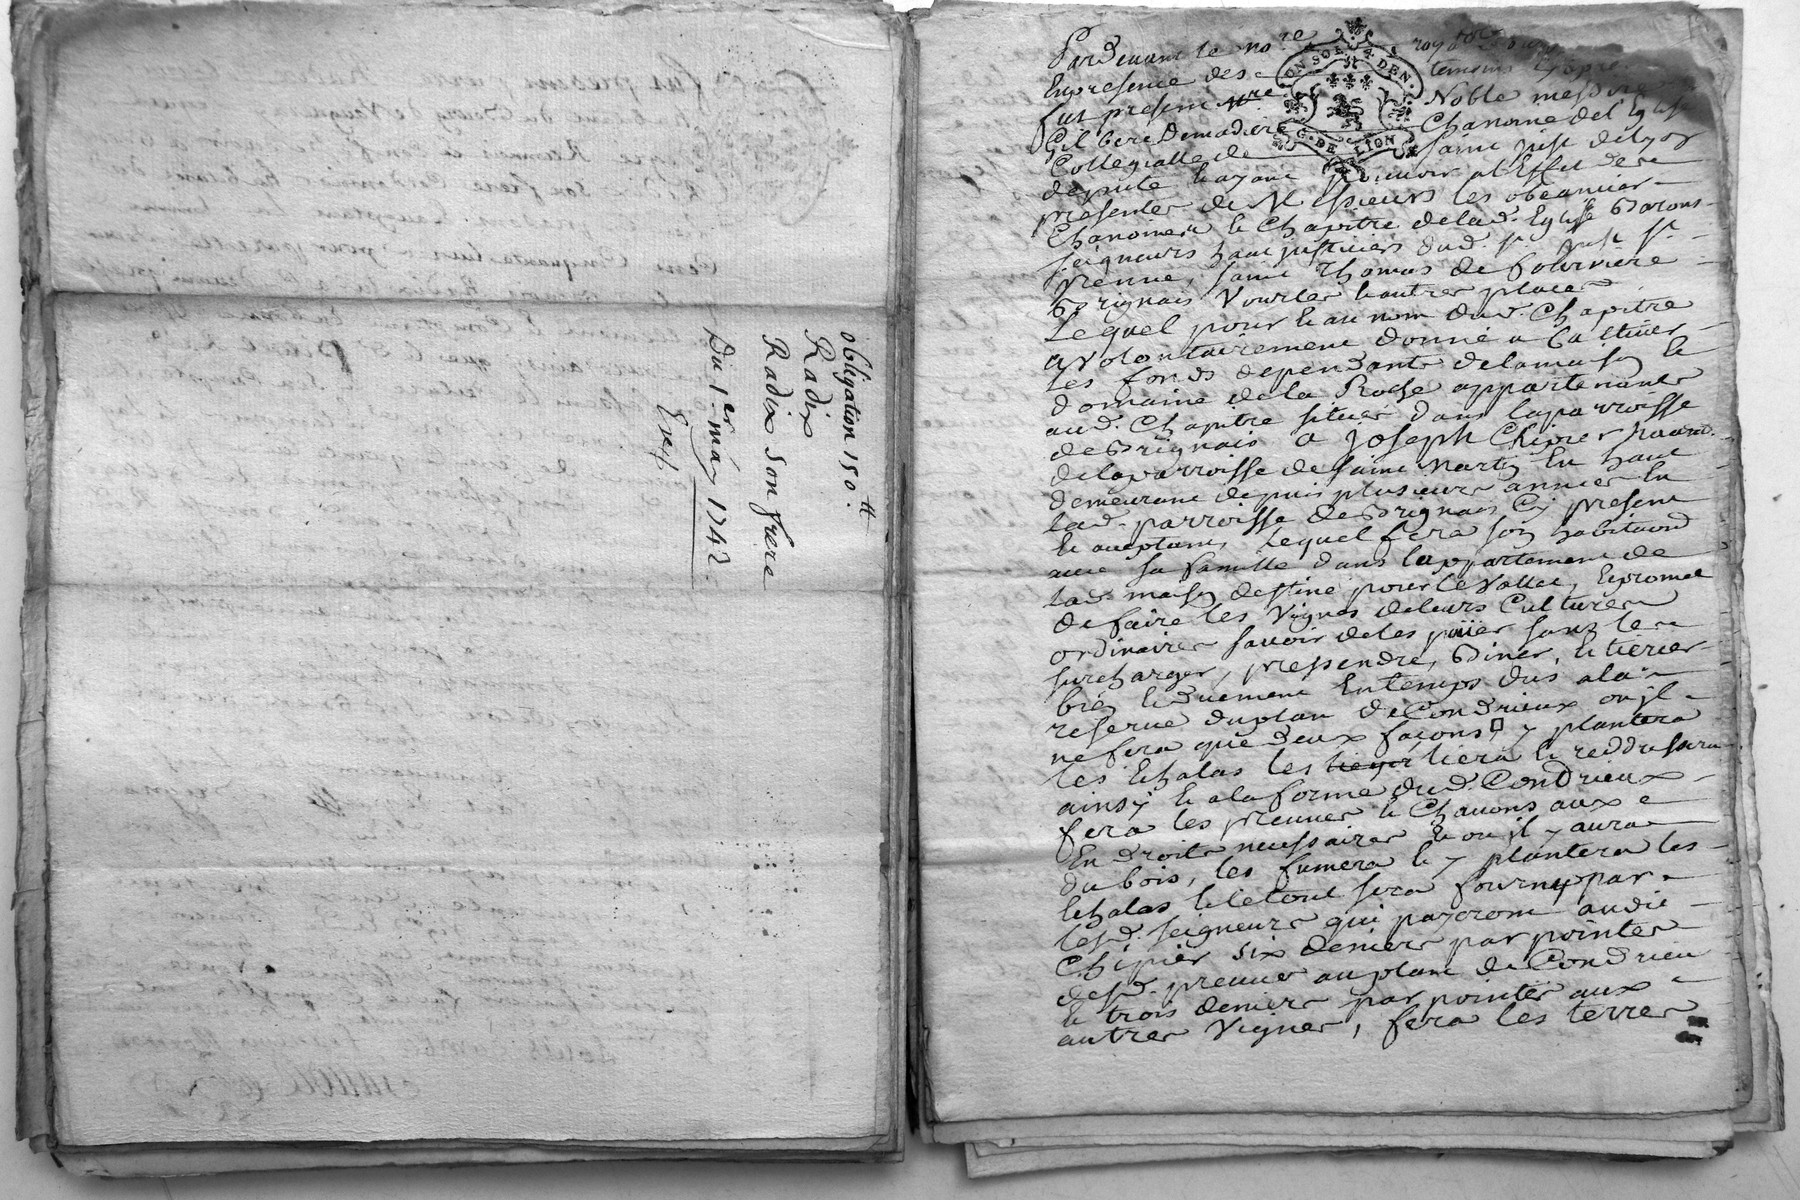 obligation 150 ₶.
Radix
Radix son frere
Du 1er may 1742.
Exp.
Pardevant le no.re roy.al
En presence des temoins
fut present Noble messire
Gilbert Demadiere Chanoine de l'Eglise
Collegialle de saint just de lyon
deputé et ayant pouvoir a l'Effet de
presenter de Messieurs les obeancier
Chanoines et Chapitre de lad. Eglise Barons
seigneurs haut justiciers dud. st just st
Irenne, saint Thomas de fourviere
Brignais Vourles et autres places
Lequel pour et au nom dud. Chapitre
a volontairement donné a Cultiver
les fonds dependants de la maison et
domaine de la Roche appartenants
aud. Chapitre situés dans la parroisse
de Brignais a joseph Chipier
de la parroisse de saint Martin En haut
demeurant depuis plusieurs années En
lad. parroisse de Brignais Cy present
et aceptant, Lequel fera son habitaõn
avec sa famille dans l'appartement de
lad. maison destiné pour le Vallet, Et promet
de faire les Vignes de leurs Cultures
ordinaires savoir de les puïer sans les
surcharger, pressendre, Biner, et tiercer
bien et duement En temps dus a la
reserve du plan de Condrieux ou jl
ne fera que deux façons, y plantera
les Echalas les liera et reddressera
ainsy et a la forme dud. Condrieux
fera les preuves et Chavons aux
Endroits necessaires et ou jl y aura
du bois, les fumera et y plantera les
Echalas et le tout sera fourny par
lesd. seigneurs qui payeront audit
Chipier six deniers par pointes
desd. preuves au plan de Condrieu
et trois deniers par pointes aux
autres Vignes, fera les terres
DEN.
G. DE LION